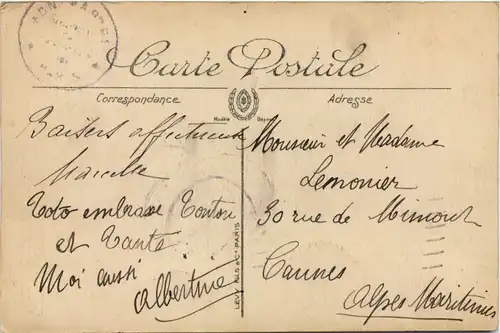 Carte Postale
Correspondance
Adresse
Modèle Déposé
Baisers affectueux
Marcelle
Toto embrasse Tonton
et Tante
Moi aussi
Albertine
LEVY FILS & Cie PARIS
Monsieur et Madame
Lemonier
30 rue de Mimont
Cannes
Alpes Maritimes